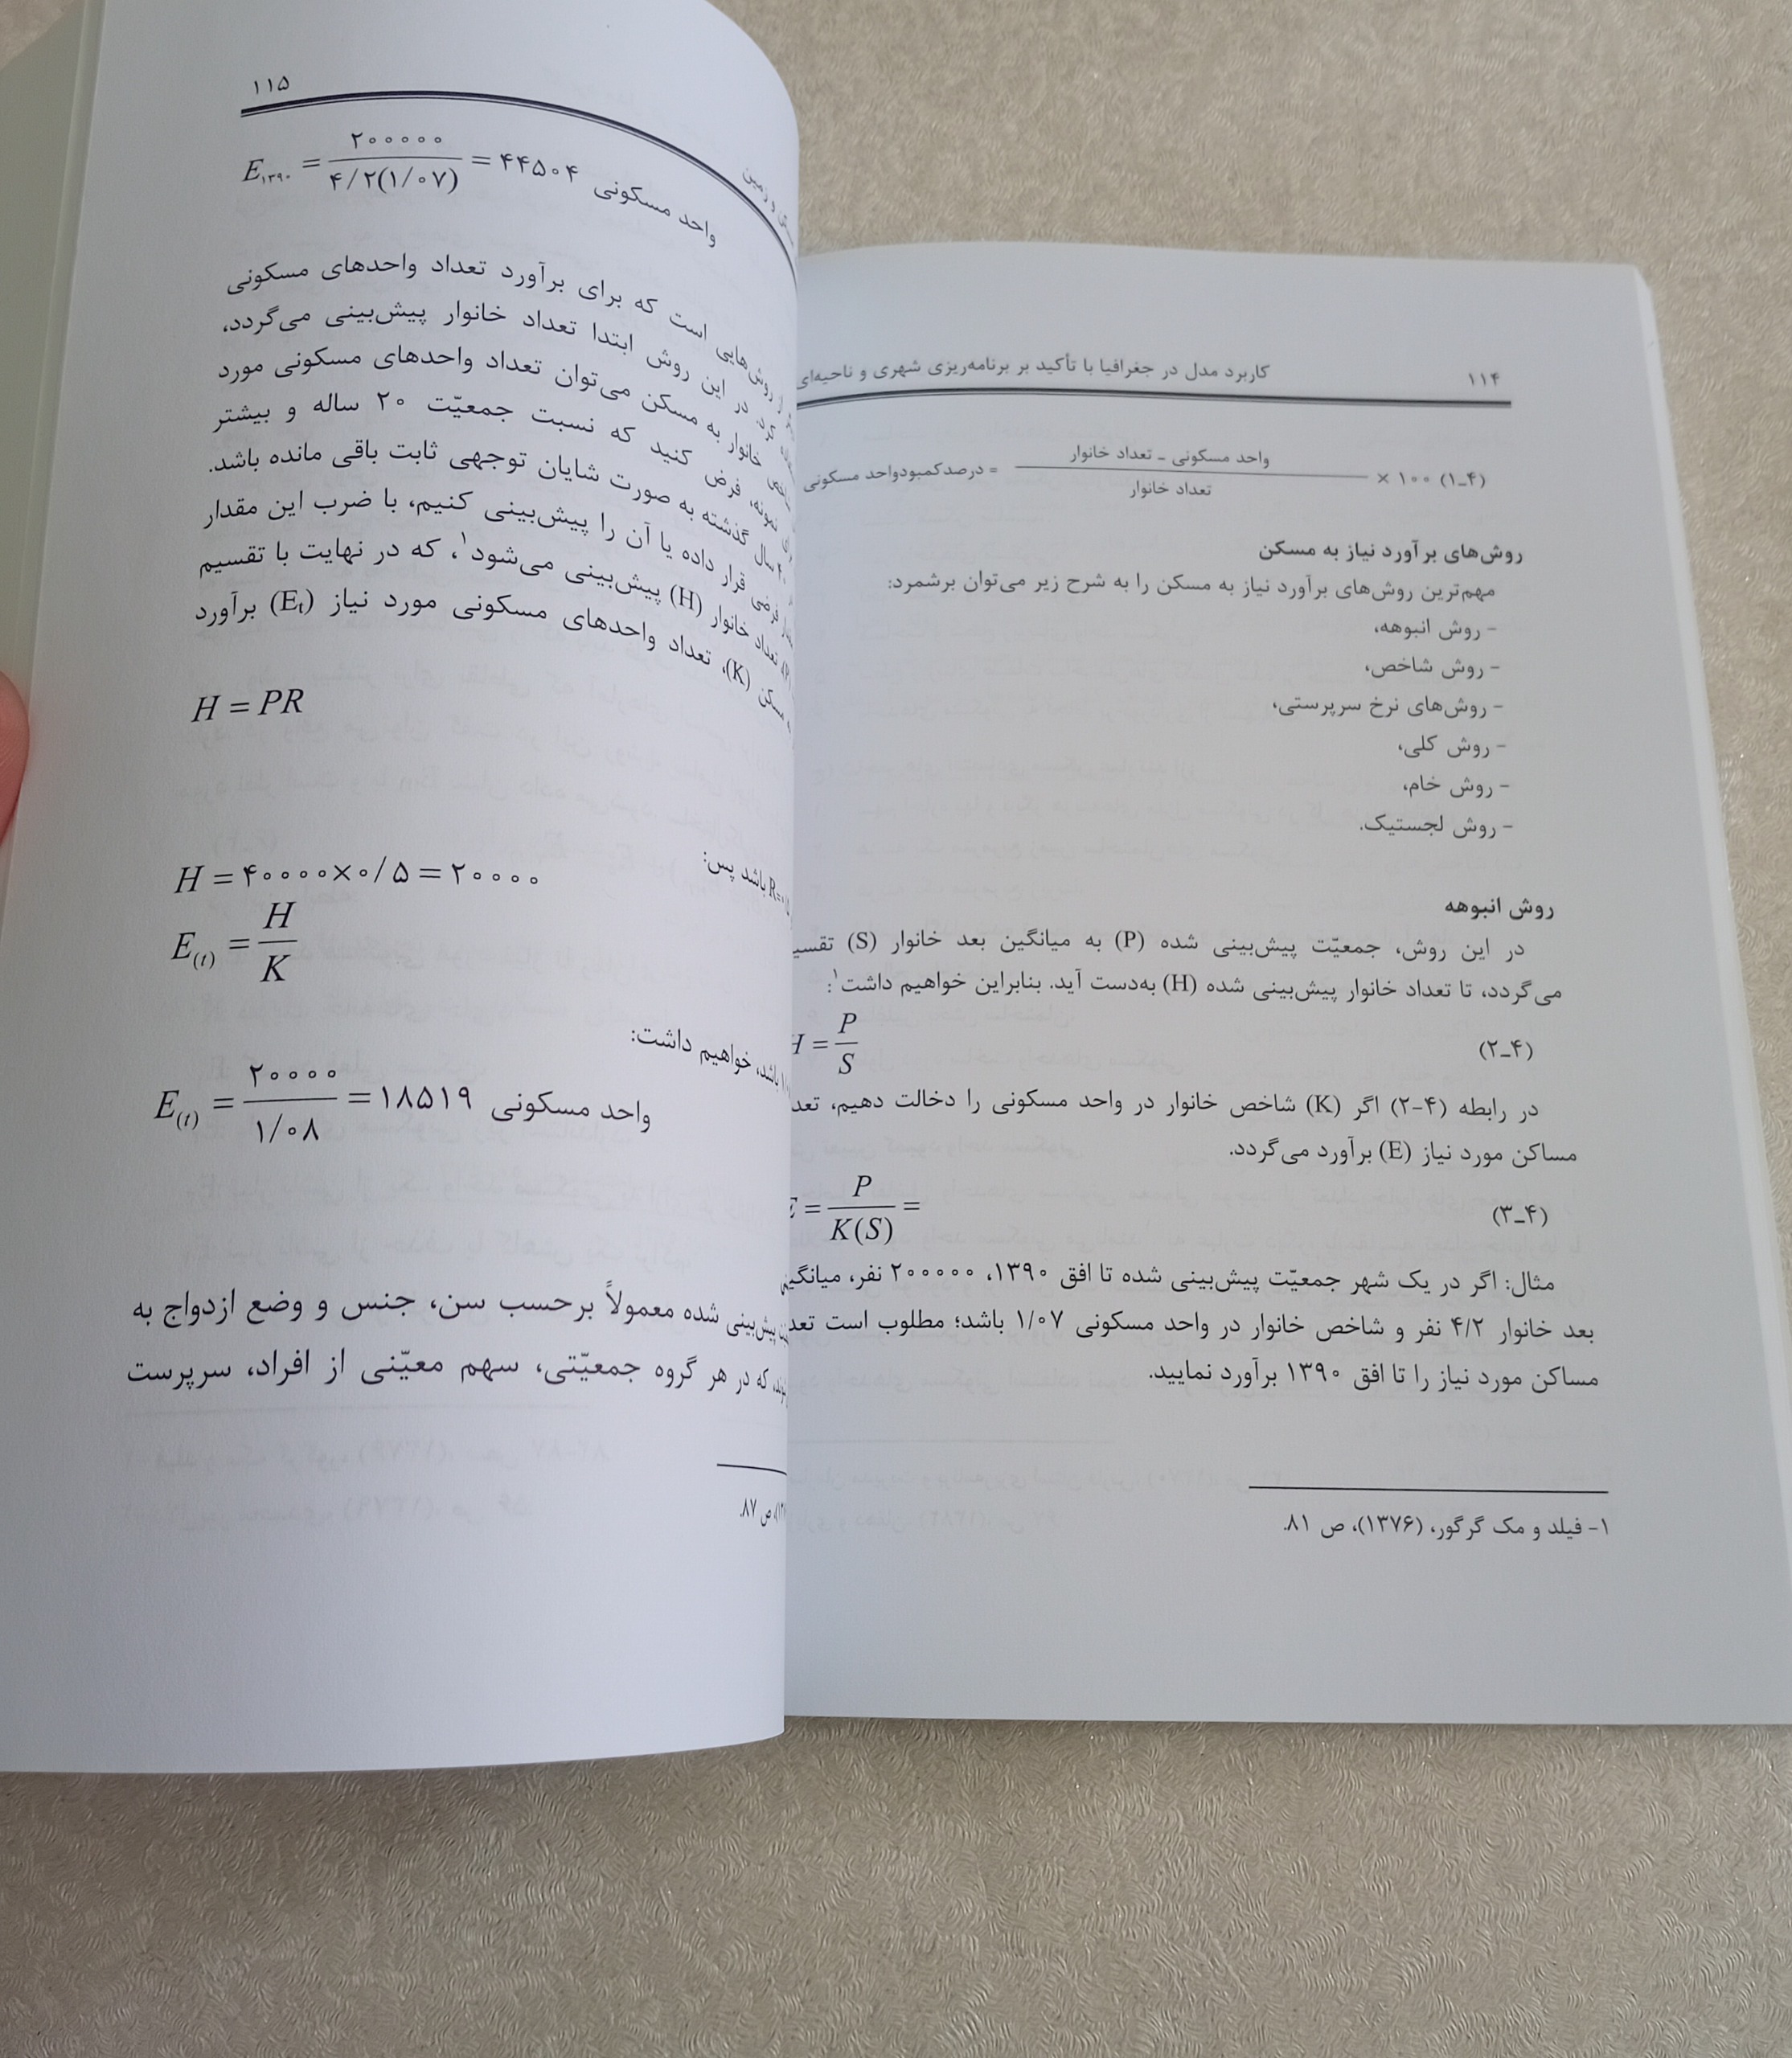 ۱۱۴
کاربرد مدل در جغرافیا با تأکید بر برنامه‌ریزی شهری و ناحیه‌ای
(۴_۱) درصدکمبودواحد مسکونی = واحد مسکونی - تعداد خانوار / تعداد خانوار × ۱۰۰
روش‌های برآورد نیاز به مسکن
مهم‌ترین روش‌های برآورد نیاز به مسکن را به شرح زیر می‌توان برشمرد:
- روش انبوهه،
- روش شاخص،
- روش‌های نرخ سرپرستی،
- روش کلی،
- روش خام،
- روش لجستیک.
روش انبوهه
در این روش، جمعیّت پیش‌بینی شده (P) به میانگین بعد خانوار (S)
می‌گردد، تا تعداد خانوار پیش‌بینی شده (H) به‌دست آید. بنابراین خواهیم داشت۱:
(۴_۲) H = P / S
در رابطه (۴-۲) اگر (K) شاخص خانوار در واحد مسکونی را دخالت دهیم،
مساکن مورد نیاز (E) برآورد می‌گردد.
(۴_۳) E = P / K(S) =
مثال: اگر در یک شهر جمعیّت پیش‌بینی شده تا افق ۱۳۹۰، ۲۰۰۰۰۰ نفر،
بعد خانوار ۴/۲ نفر و شاخص خانوار در واحد مسکونی ۱/۰۷ باشد؛ مطلوب است
مساکن مورد نیاز را تا افق ۱۳۹۰ برآورد نمایید.
۱- فیلد و مک گرگور، (۱۳۷۶)، ص ۸۱.
۱۱۵
و زمین
E۱۳۹۰ = ۲۰۰۰۰۰ / ۴/۲(۱/۰۷) = ۴۴۵۰۴ واحد مسکونی
روش‌هایی است که برای برآورد تعداد واحدهای مسکونی
کرد. در این روش ابتدا تعداد خانوار پیش‌بینی می‌گردد،
خانوار به مسکن می‌توان تعداد واحدهای مسکونی مورد
نمونه، فرض کنید که نسبت جمعیّت ۲۰ ساله و بیشتر
سال گذشته به صورت شایان توجهی ثابت باقی مانده باشد.
فرضی قرار داده یا آن را پیش‌بینی کنیم، با ضرب این مقدار
تعداد خانوار (H) پیش‌بینی می‌شود۱، که در نهایت با تقسیم
مسکن (K)، تعداد واحدهای مسکونی مورد نیاز (Et) برآورد
H = PR
باشد پس:
H = ۴۰۰۰۰×۰/۵ = ۲۰۰۰۰
E(t) = H / K
باشد، خواهیم داشت:
E(t) = ۲۰۰۰۰ / ۱/۰۸ = ۱۸۵۱۹ واحد مسکونی
پیش‌بینی شده معمولاً برحسب سن، جنس و وضع ازدواج به
که در هر گروه جمعیّتی، سهم معیّنی از افراد، سرپرست
ص ۸۷.